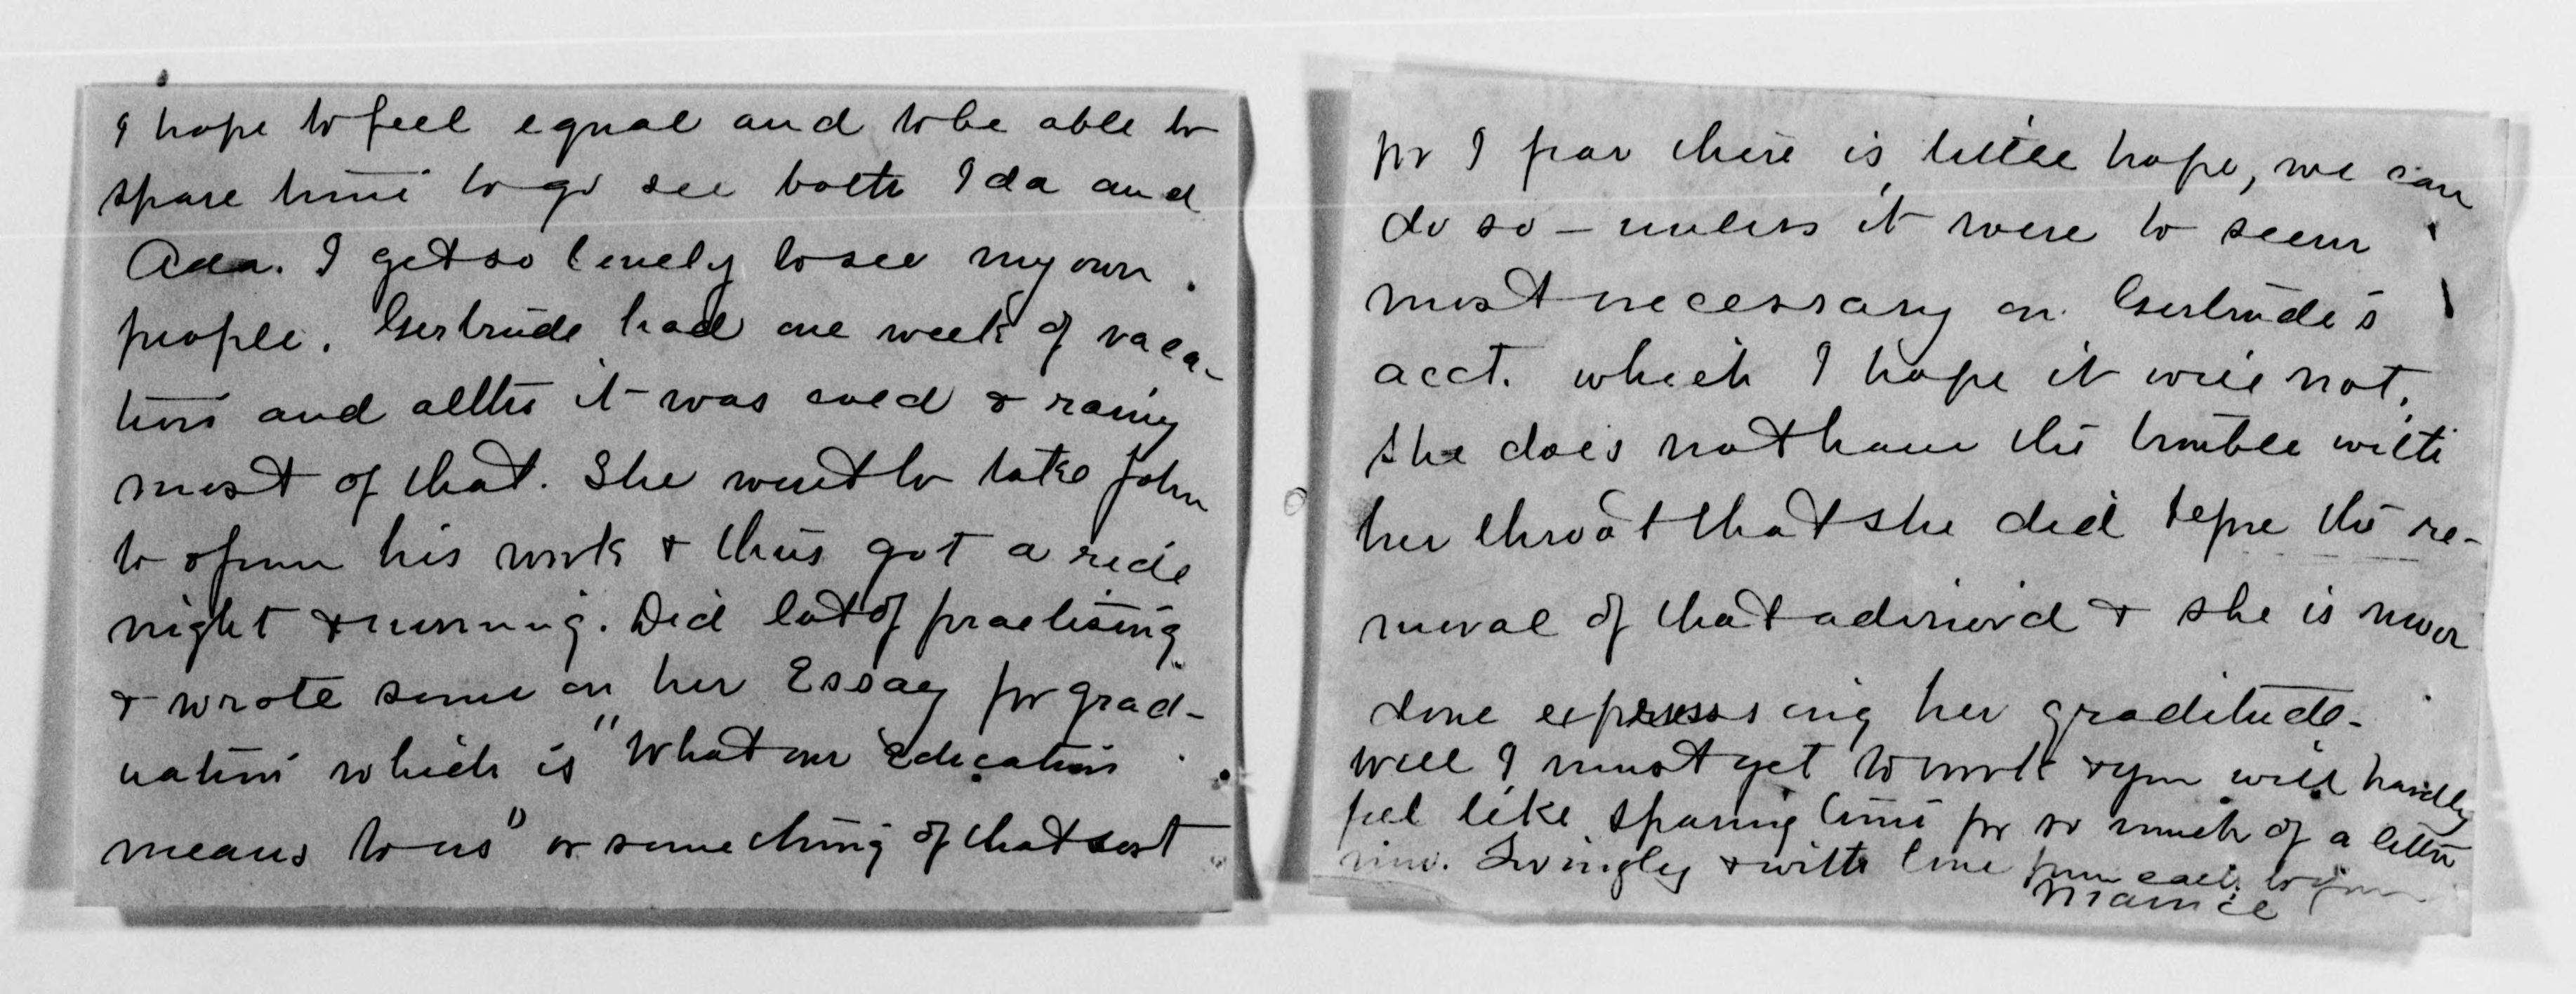 I hope to feel equal and to be able to
spare time to go see both Ida and
Ada. I get so lonely to see my own
people. Gertrude had one week of vaca-
tion and altho it was cold & rainy
most of that. She went to take John
to & from his work & thus got a ride
night & morning. Did lot of practising
& wrote some on her Essay for grad-
uation which is "What our Education
means to us" or something of that sort
for I fear there is little hope, we can
do so - unless it were to seem
most necessary on Gertrude's
acct. which I hope it will not.
She does not have the trouble with
her throat that she did before the re-
moval of that adinoid & she is never
done expressing her graditude -
Well I must get to work & you will hardly
feel like sparing time for so much of a letter
now. Lovingly & with love from each to you
Mamie